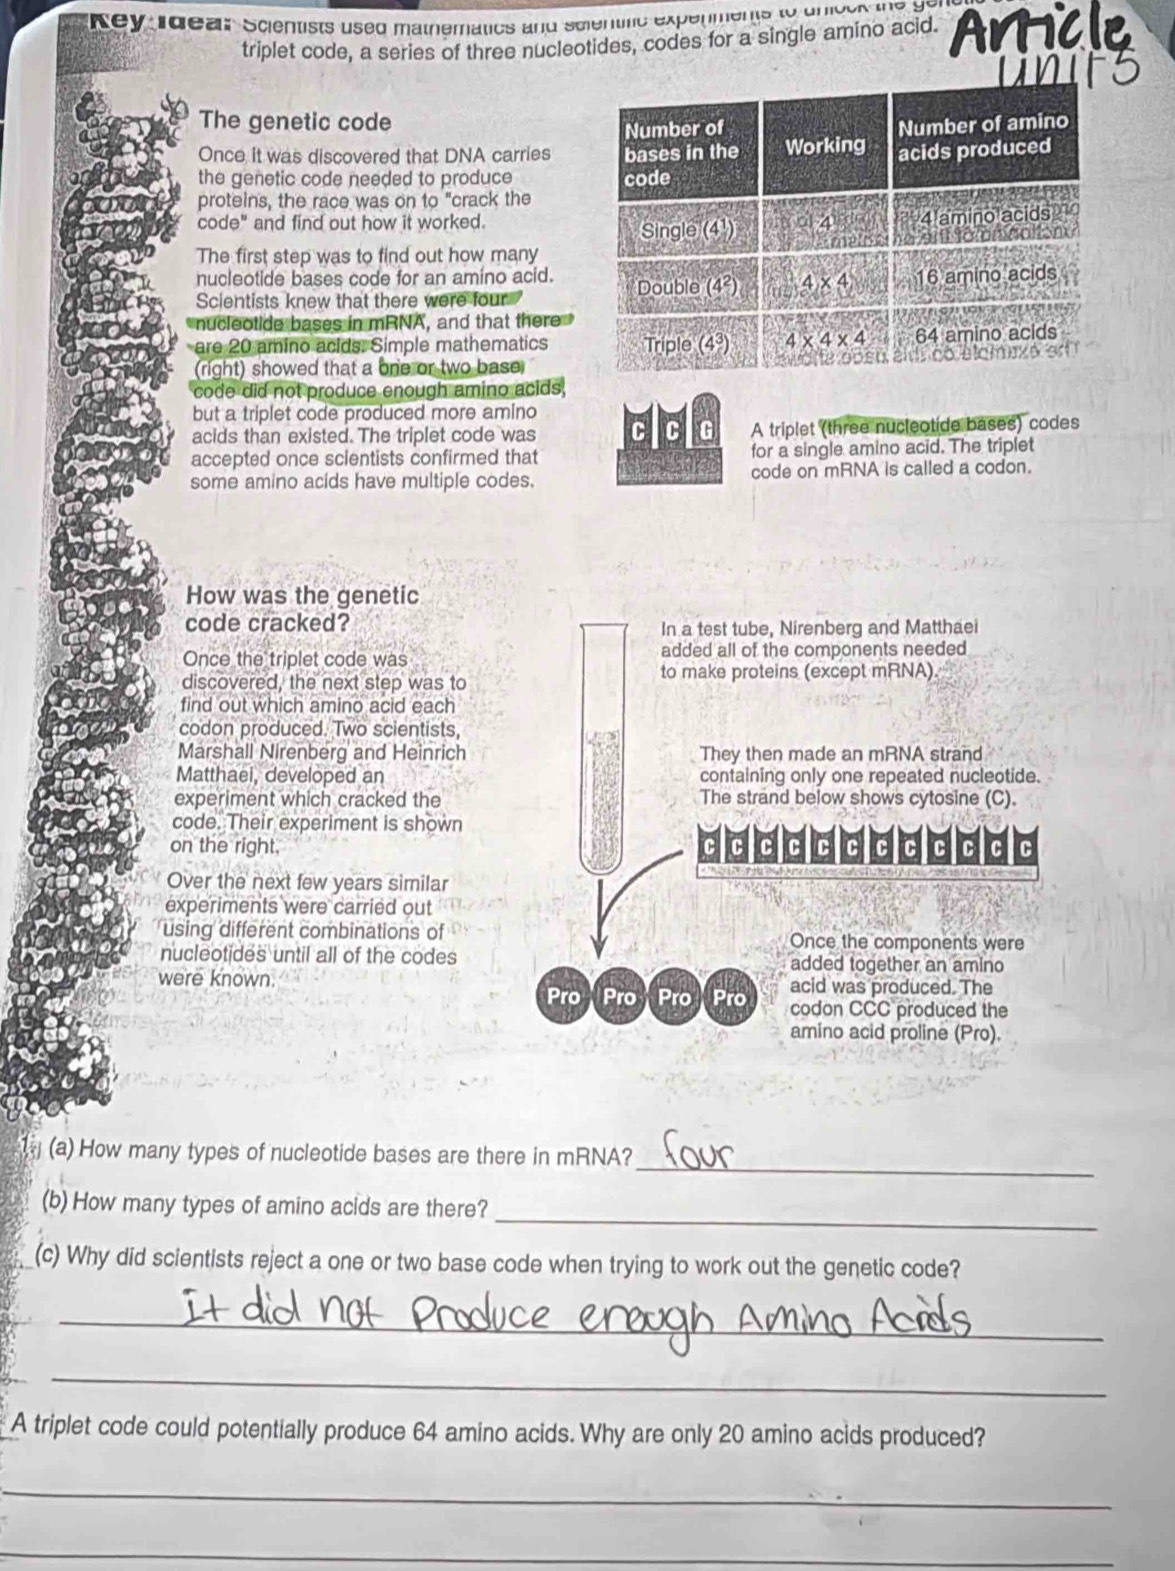 Key Idea: Scientists used mathematics and scientific experiments to unlock the
triplet code, a series of three nucleotides, codes for a single amino acid.
Article
units
The genetic code
Once it was discovered that DNA carries
the genetic code needed to produce
proteins, the race was on to "crack the
code" and find out how it worked.
The first step was to find out how many
nucleotide bases code for an amino acid.
Scientists knew that there were four
nucleotide bases in mRNA, and that there
are 20 amino acids. Simple mathematics
(right) showed that a one or two base
code did not produce enough amino acids,
but a triplet code produced more amino
acids than existed. The triplet code was
accepted once scientists confirmed that
some amino acids have multiple codes.
Number of bases in the code | Working | Number of amino acids produced
Single (4¹) | 4 | 4 amino acids
Double (4²) | 4 x 4 | 16 amino acids
Triple (4³) | 4 x 4 x 4 | 64 amino acids
C C G
A triplet (three nucleotide bases) codes
for a single amino acid. The triplet
code on mRNA is called a codon.
How was the genetic
code cracked?
Once the triplet code was
discovered, the next step was to
find out which amino acid each
codon produced. Two scientists,
Marshall Nirenberg and Heinrich
Matthaei, developed an
experiment which cracked the
code. Their experiment is shown
on the right.
Over the next few years similar
experiments were carried out
using different combinations of
nucleotides until all of the codes
were known.
In a test tube, Nirenberg and Matthaei
added all of the components needed
to make proteins (except mRNA).
They then made an mRNA strand
containing only one repeated nucleotide.
The strand below shows cytosine (C).
C C C C C C C C C C C C
Once the components were
added together an amino
acid was produced. The
codon CCC produced the
amino acid proline (Pro).
Pro Pro Pro Pro
1. (a) How many types of nucleotide bases are there in mRNA? four
(b) How many types of amino acids are there?
(c) Why did scientists reject a one or two base code when trying to work out the genetic code?
It did not Produce enough Amino Acids
A triplet code could potentially produce 64 amino acids. Why are only 20 amino acids produced?